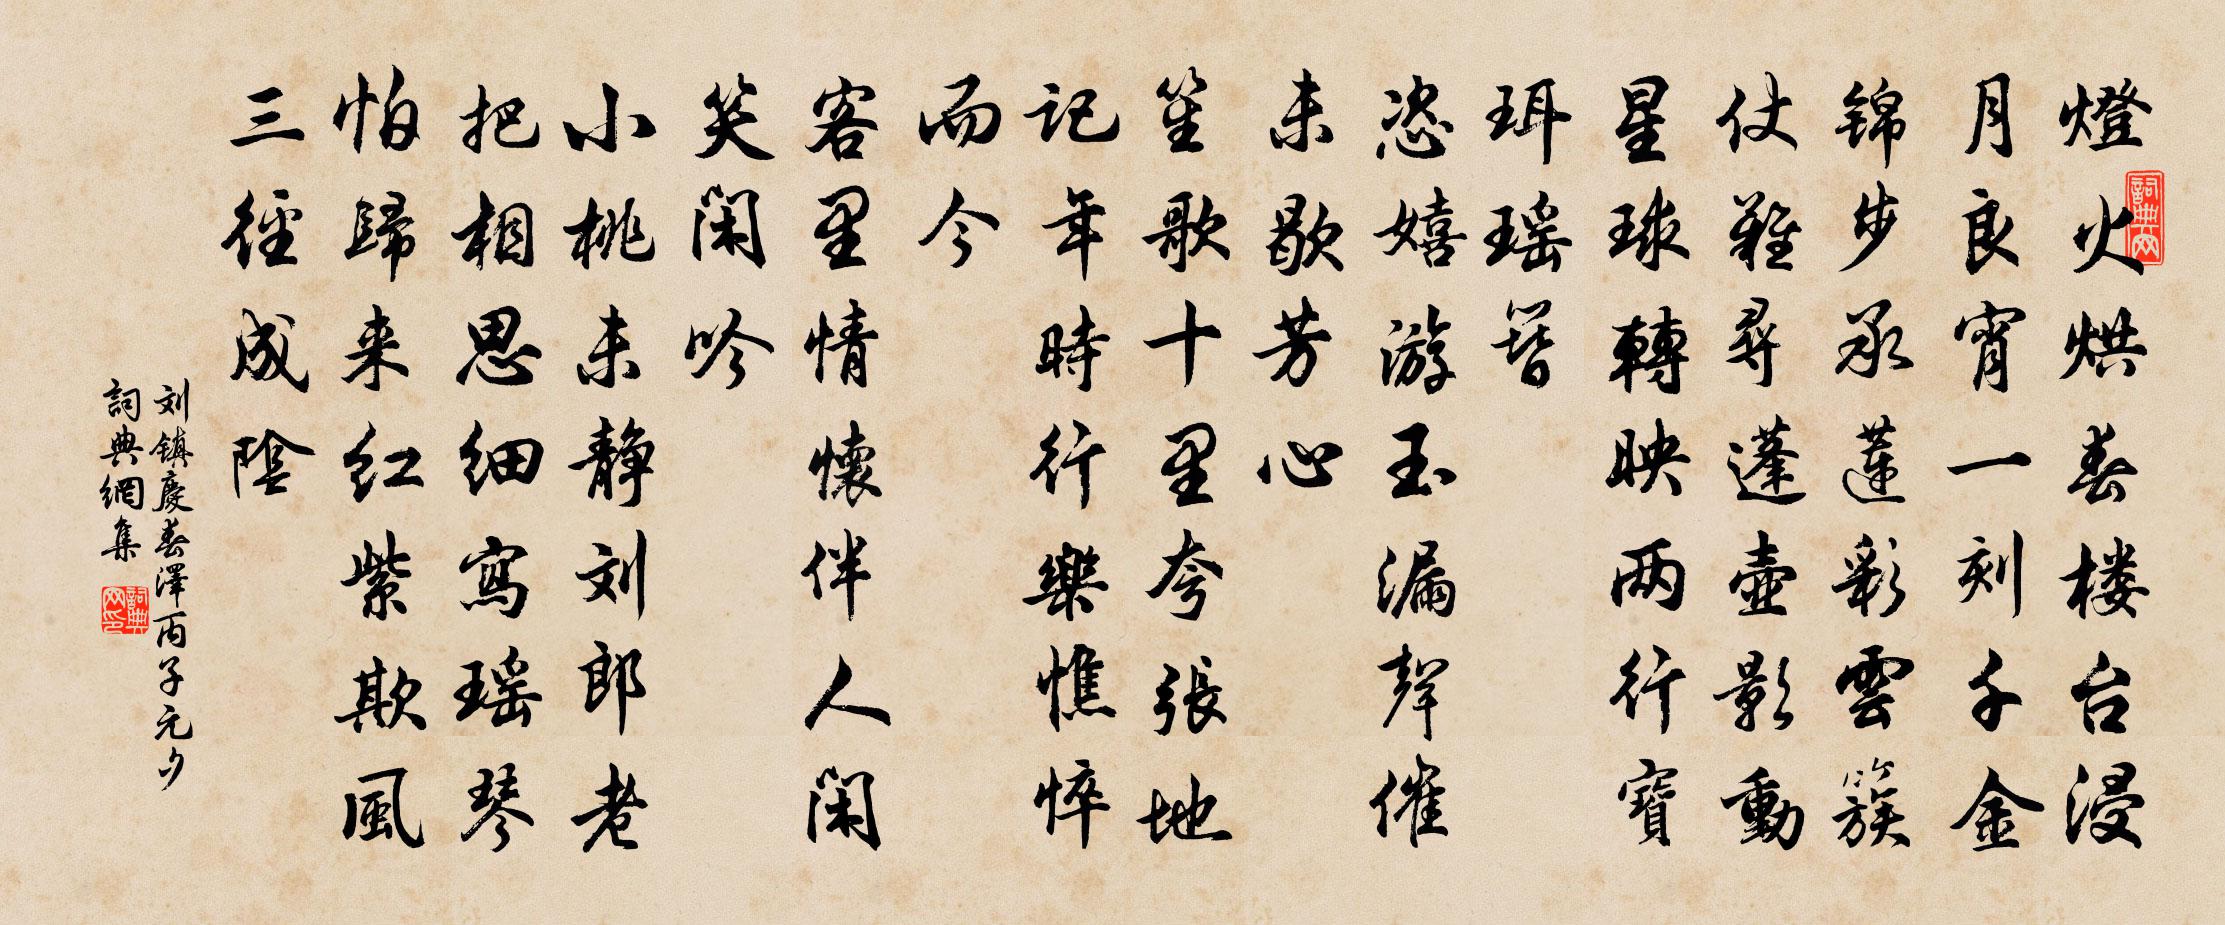 燈火烘春楼台浸
月良宵一刻千金
锦步承莲彩雲簇
仗難尋蓬壶影動
星球轉映两行寶
珥瑶簪
恣嬉游玉漏聲催
未歇芳心
笙歌十里夸張地
記年時行樂憔悴
而今
客里情懷伴人闲
笑闲吟
小桃未静刘郎老
把相思细寫瑶琴
怕歸来红紫欺風
三徑成陰
刘镇慶春澤丙子元夕
詞典網集
詞典网
詞典网印